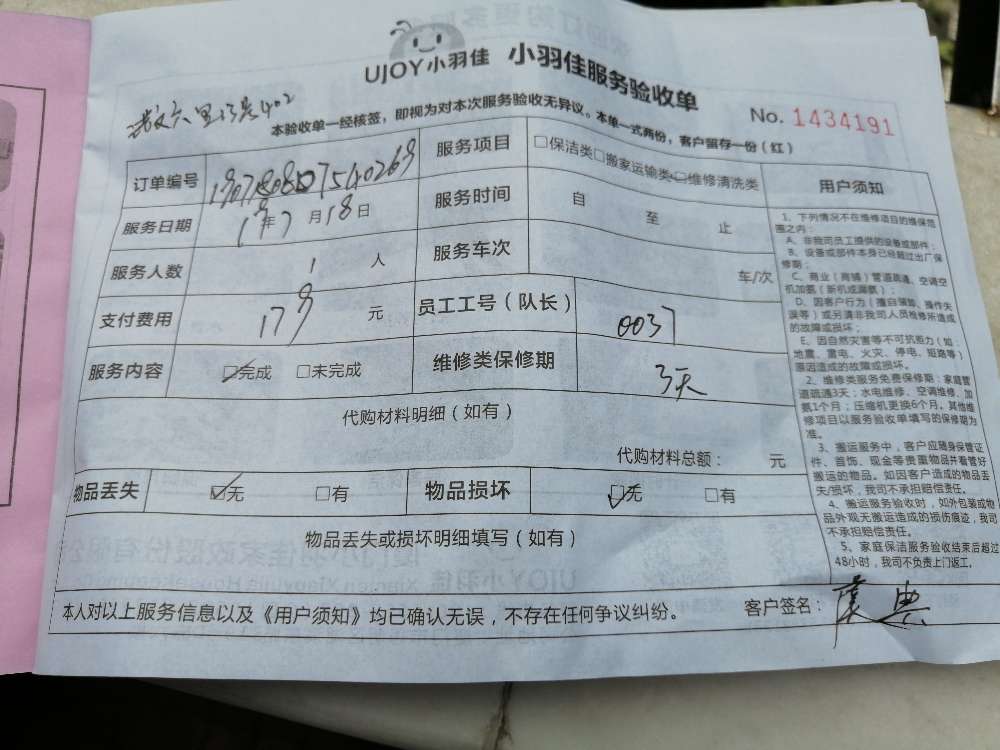 UJOY小羽佳 小羽佳服务验收单
No. 1434191
本验收单一经核签，即视为对本次服务验收无异议。本单一式两份，客户留存一份（红）
订单编号
服务项目 □保洁类□搬家运输类□维修清洗类
服务日期 19年7月18日
服务时间 自 至 止
服务人数 1 人
服务车次 车/次
支付费用 179 元
员工工号（队长） 0037
服务内容 ☑完成 □未完成
维修类保修期 3天
代购材料明细（如有）
代购材料总额： 元
物品丢失 ☑无 □有
物品损坏 ☑无 □有
物品丢失或损坏明细填写（如有）
本人对以上服务信息以及《用户须知》均已确认无误，不存在任何争议纠纷。
客户签名：
用户须知
1、下列情况不在维修项目的维保范
围之内：
A、非我司员工提供的设备或部件；
B、设备或部件本身已经超过出厂保
修期；
C、商业（商铺）管道疏通、空调空
机加氨（新机或漏氨）；
D、因客户行为（擅自领卸、操作失
误等）或另请非我司人员检修所造成
的故障或损坏；
E、因自然灾害等不可抗拒力（如：
地震、雷电、火灾、停电、短路等）
原因造成的故障或损坏。
2、维修类服务免费保修期：家庭管
道疏通3天；水电维修、空调维修、加
氨1个月；压缩机更换6个月。其他维
修项目以服务验收单填写的保修期为
准。
3、搬运服务中，客户应随身保管证
件、首饰、现金等贵重物品并看管好
搬运的物品。如因客户造成的物品丢
失/损坏，我司不承担赔偿责任。
4、搬运服务验收时，如外包装或物
品外观无搬运造成的损伤痕迹，我司
不承担赔偿责任。
5、家庭保洁服务验收结束后超过
48小时，我司不负责上门返工。